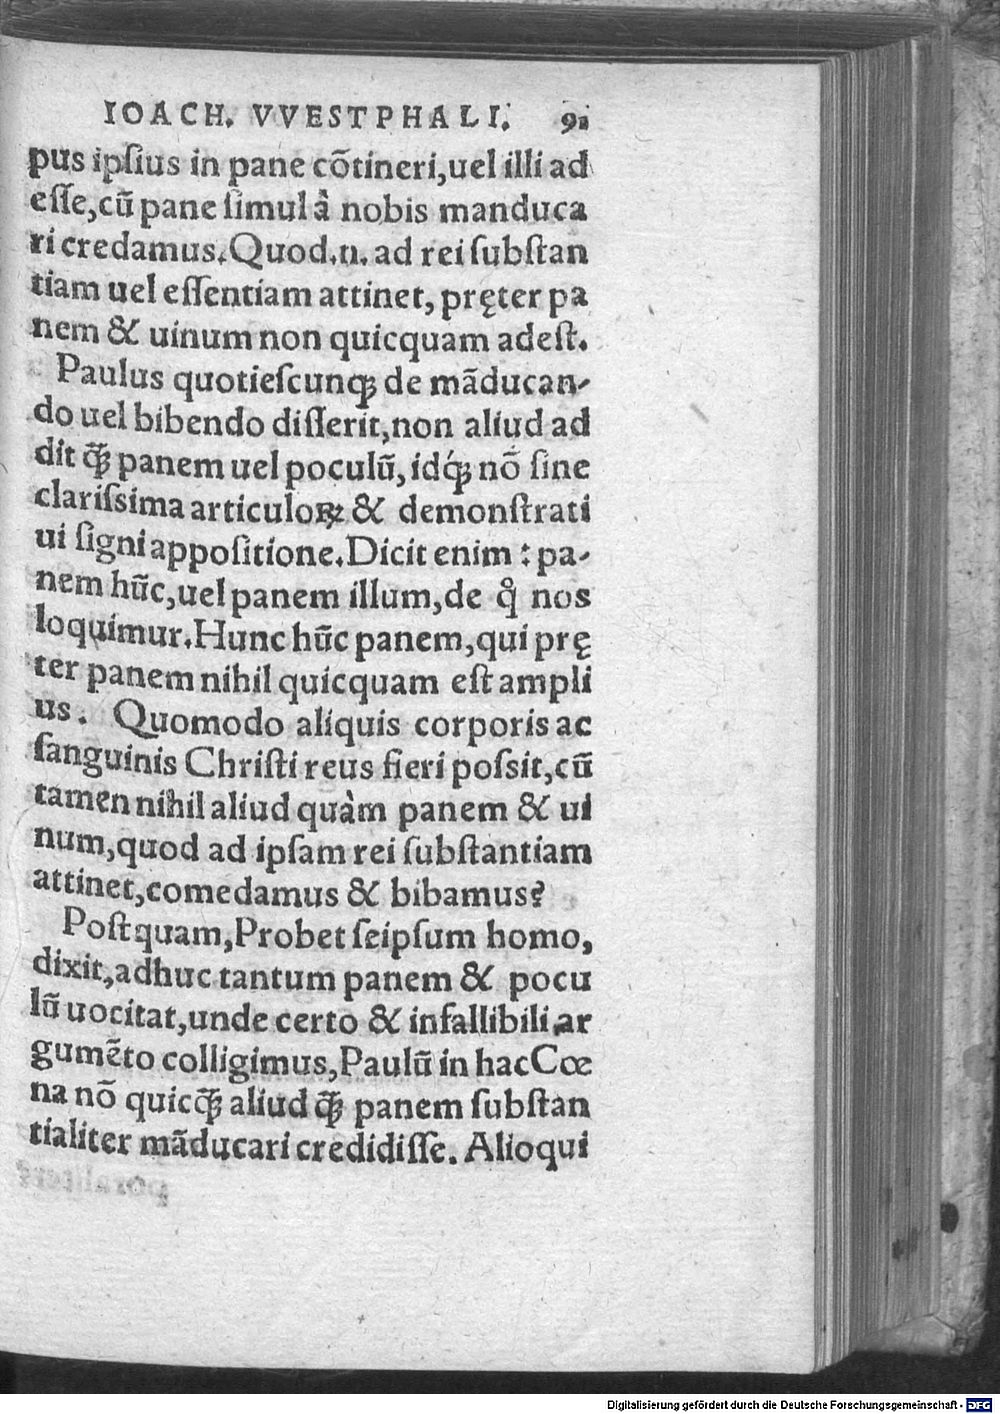 IOACH. VVESTPHALI. 91
pus ipſius in pane cõtineri,uel illi ad
eſſe,cũ pane ſimul à nobis manduca
ri credamus.Quod.n. ad rei ſubſtan
tiam uel eſſentiam attinet, pręter pa
nem & uinum non quicquam adeſt.
Paulus quotieſcunqꝫ de mãducan-
do uel bibendo diſſerit,non aliud ad
dit qꝫ̃ panem uel poculũ, idqꝫ́ nõ ſine
clariſsima articuloꝝ & demonſtrati
ui ſigni appoſitione.Dicit enim : pa-
nem hũc,uel panem illum,de qͦ nos
loquimur.Hunc hũc panem,qui prę
ter panem nihil quicquam eſt ampli
us. Quomodo aliquis corporis ac
ſanguinis Chriſti reus fieri poſsit,cũ
tamen nihil aliud quàm panem & ui
num,quod ad ipſam rei ſubſtantiam
attinet,comedamus & bibamus?
Poſtquam,Probet ſeipſum homo,
dixit,adhuc tantum panem & pocu
lũ uocitat,unde certo & infallibili ar
gumẽto colligimus,Paulũ in hac Cœ
na nõ quicqꝫ̃ aliud qꝫ̃ panem ſubſtan
tialiter mãducari credidiſſe. Alioqui
Digitalisierung gefördert durch die Deutsche Forschungsgemeinschaft - DFG